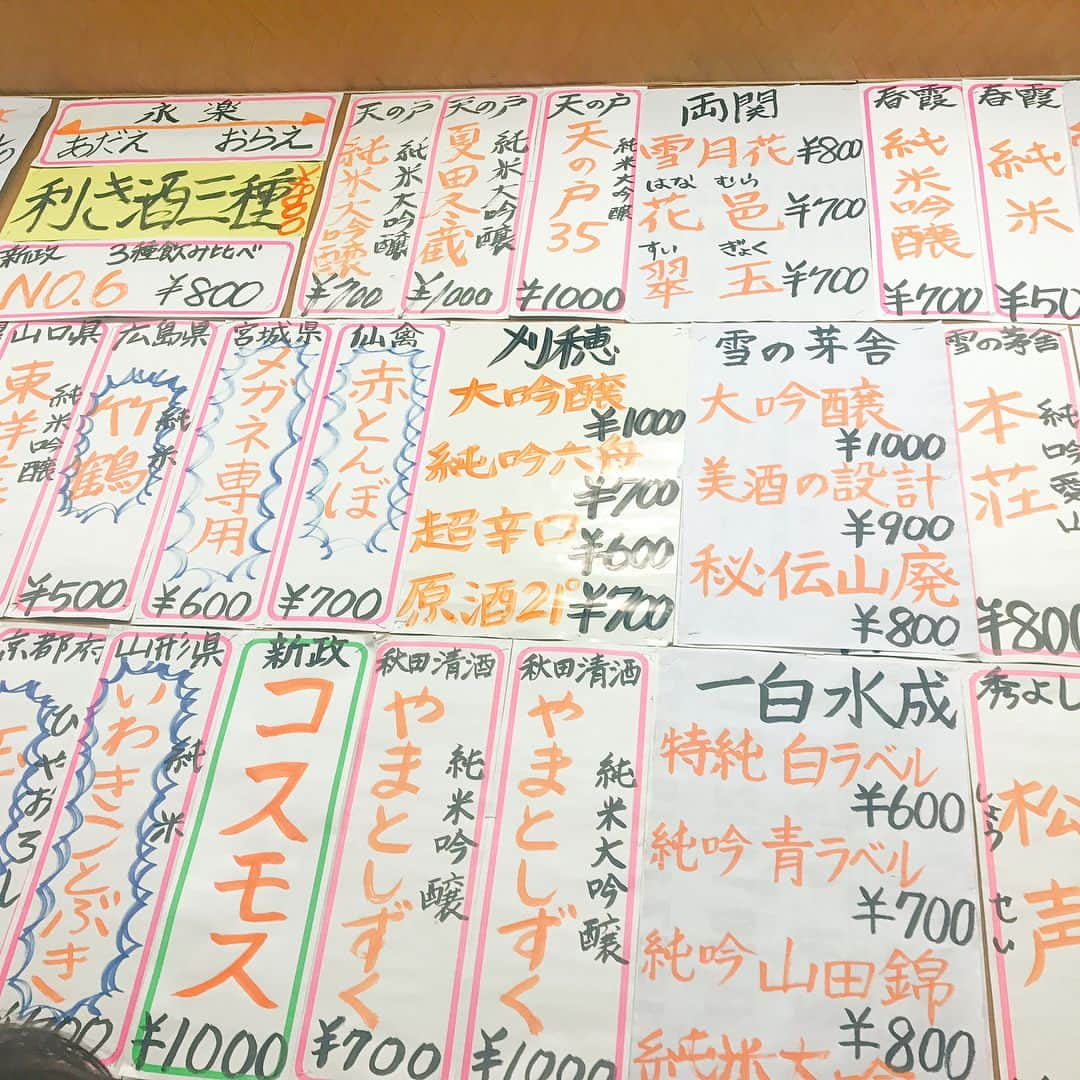 永楽
あだえ おらえ
利き酒三種
新政 3種飲み比べ
NO.6 ¥800
天の戸
純米大吟醸
純米大吟醸
¥700
天の戸
夏田冬蔵
純米大吟醸
¥1000
天の戸
天の戸35
純米大吟醸
¥1000
両関
雪月花 ¥800
はな むら
花邑 ¥700
すい ぎょく
翠玉 ¥700
春霞
純米吟醸
¥700
春霞
純米
山口県
東洋
純米吟醸
¥500
広島県
竹鶴
純米
宮城県
メガネ専用
¥600
仙禽
赤とんぼ
¥700
刈穂
大吟醸
¥1000
純吟六舟
¥700
超辛口
¥600
原酒21° ¥700
雪の茅舎
大吟醸
¥1000
美酒の設計
¥900
秘伝山廃
¥800
雪の茅舎
本荘
純吟愛山
¥800
京都府
ひやおろし
山形県
いわきことぶき
純米
新政
コスモス
¥1000
秋田清酒
やまとしずく
純米吟醸
¥700
秋田清酒
やまとしずく
純米大吟醸
¥1000
一白水成
特純 白ラベル
¥600
純吟 青ラベル
¥700
純吟 山田錦
¥800
純米大吟
秀よし
松声
しょう せい